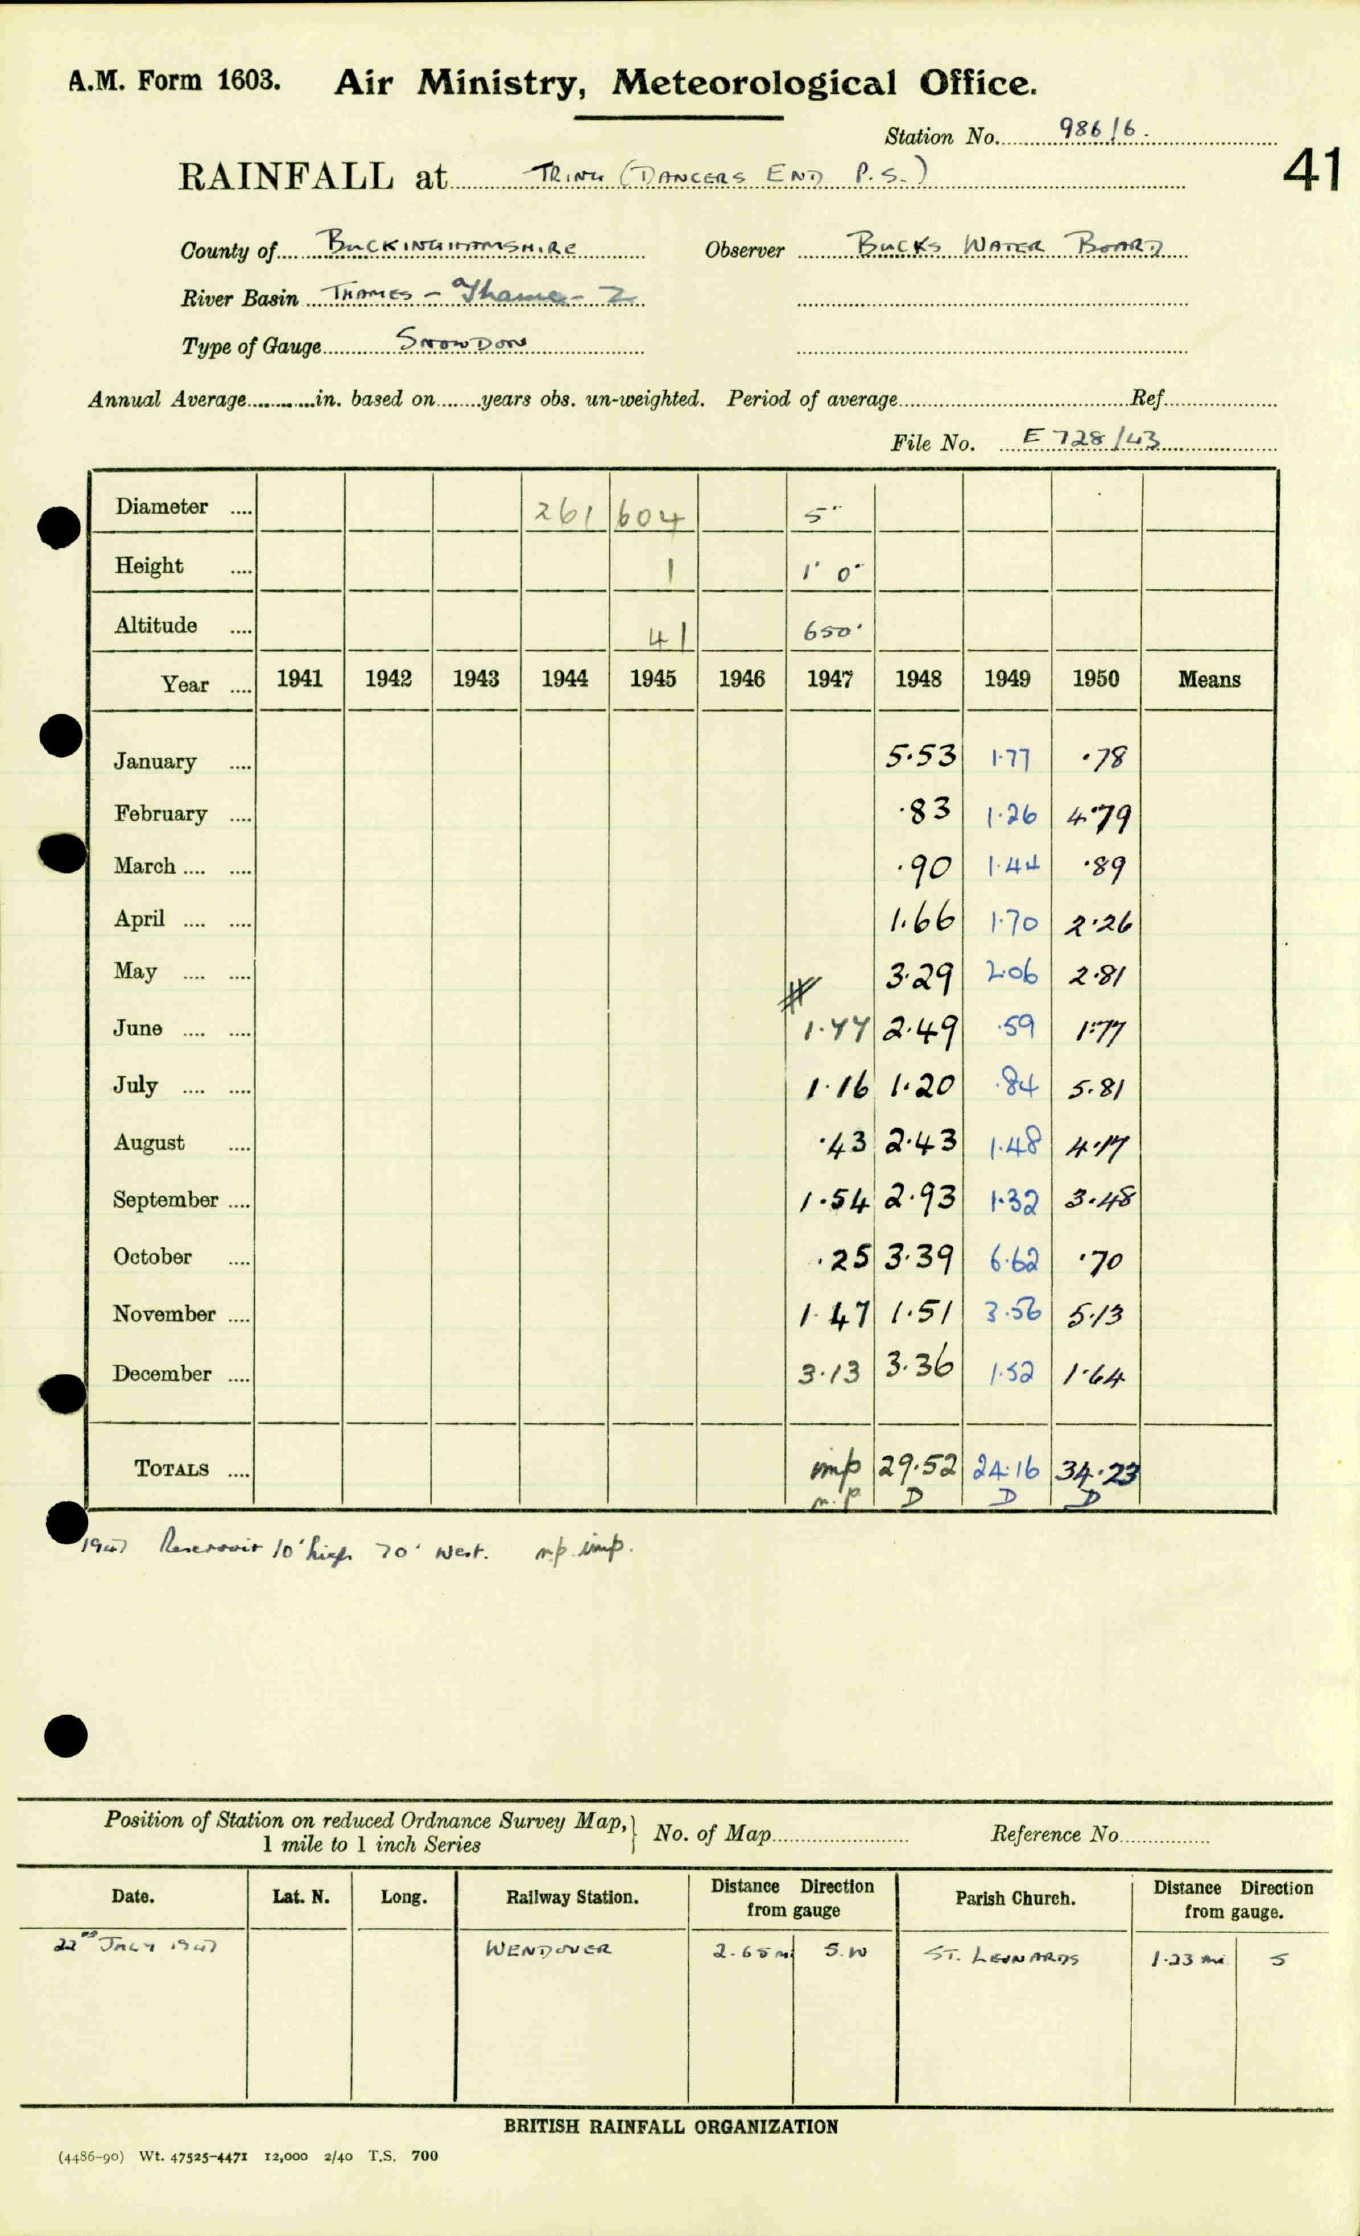 A.M. Form 1603. Air Ministry, Meteorological Office.
Station No. 986/6.
41
RAINFALL at TRING (DANCERS END P.S.)
County of BUCKINGHAMSHIRE Observer BUCKS WATER BOARD
River Basin THAMES – Thame – 2
Type of Gauge SNOWDON
Annual Average in. based on years obs. un-weighted. Period of average Ref.
File No. E 728/43
Diameter 261 604 5"
Height 1 1' 0"
Altitude 41 650'
Year 1941 1942 1943 1944 1945 1946 1947 1948 1949 1950 Means
January 5.53 1.77 .78
February .83 1.26 4.79
March .90 1.44 .89
April 1.66 1.70 2.26
May 3.29 2.06 2.81
June 1.77 2.49 .59 1.77
July 1.16 1.20 .84 5.81
August .43 2.43 1.48 4.17
September 1.54 2.93 1.32 3.48
October .25 3.39 6.62 .70
November 1.47 1.51 3.56 5.13
December 3.13 3.36 1.52 1.64
TOTALS imp 29.52 24.16 34.23
n.p. D D D
1947 Reservoir 10' high 70' West. n.p. imp.
Position of Station on reduced Ordnance Survey Map, 1 mile to 1 inch Series } No. of Map Reference No.
Date. Lat. N. Long. Railway Station. Distance Direction from gauge Parish Church. Distance Direction from gauge.
22nd JULY 1947 WENDOVER 2.65 mi S.W ST. LEONARDS 1.23 mi S
BRITISH RAINFALL ORGANIZATION
(4486-90) Wt. 47525-4471 12,000 2/40 T.S. 700